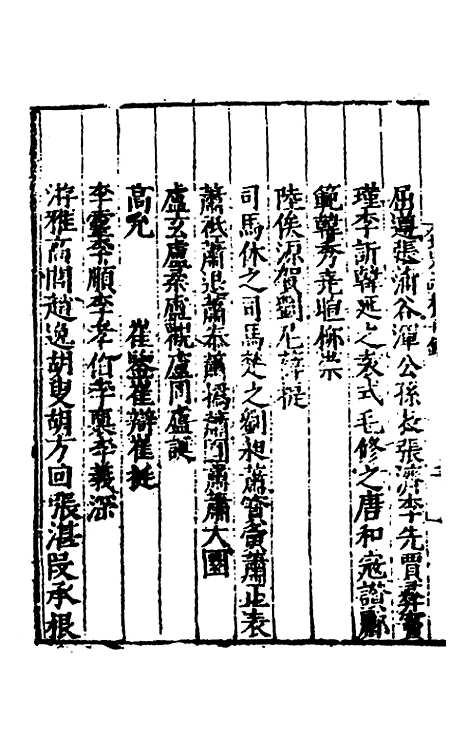 屈遵張蒲谷渾公孫表張濟李先賈彝竇
瑾李訢韓延之袁式毛修之唐和寇讚酈
範韓秀堯暄柳崇
陸俟源賀劉尼薛提
司馬休之司馬楚之劉昶蕭寶夤蕭正表
蕭祗蕭退蕭泰蕭撝蕭圓肅蕭大圜
盧玄盧柔盧觀盧同盧誕
高允 崔鑒崔辯崔挺
李靈李順李孝伯李裔李義深
游雅高閭趙逸胡叟胡方回張湛段承根